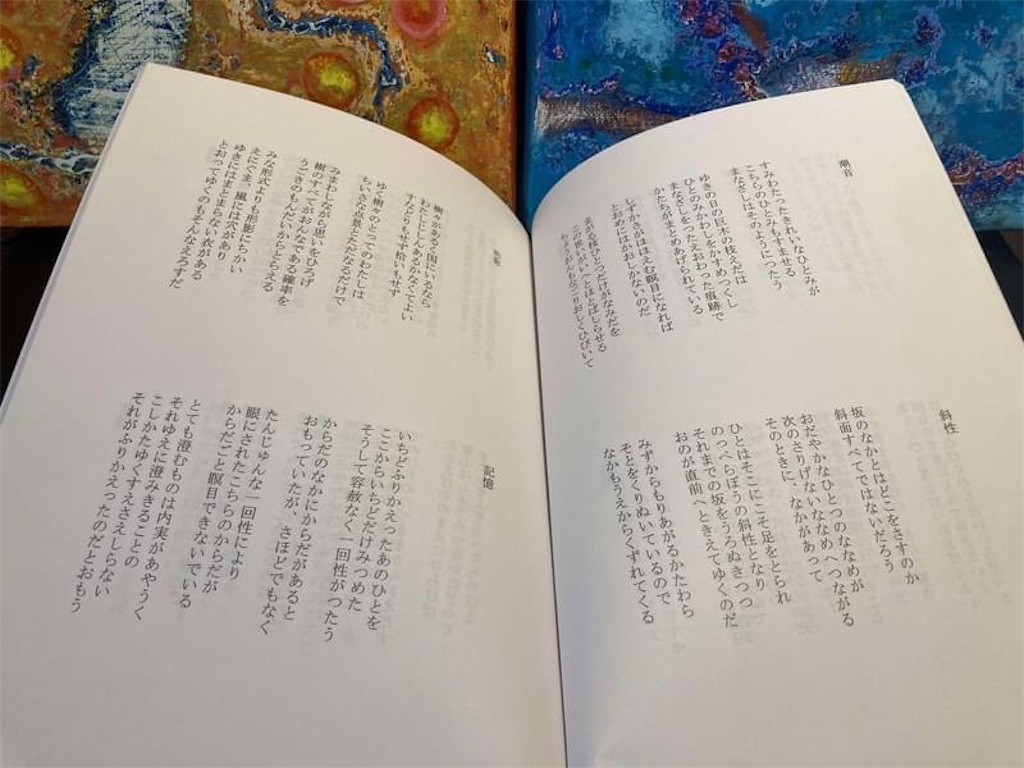 潮音
すみわたったきれいなひとみが
こちらのひとみをもすませる
まなざしはそのようにつたう
ゆきの日の巨木の枝えだは
ひとのみかわしをかすめつくし
まなざしをつたえおわった痕跡で
かたちがまとめあげられている
しずかさがほほえむ瞑目になれば
とおみにはかおしかないのだ
ひとつだけがなみだを
ほとばしらせる
なごりおしくひびいて
斜性
坂のなかとはどこをさすのか
斜面すべてではないだろう
おだやかなひとつのななめが
次のさりげないななめへつながる
そのときに、なかがあって
ひとはそこにこそ足をとられ
のっぺらぼうの斜性となり
それまでの坂をうろぬきつつ
おのが直前へときえてゆくのだ
みずからもりあがるかたわら
そとをくりぬいているので
なかもうえからくずれてくる
樹々がある国にいるなら
わたしじしんあるかなくてよい
すなどりもせず拾いもせず
ゆく樹々のとってのわたしは
ちいさな点景となるだけで
みまわしながら思いをひろげ
樹のすべてがおんなである確率を
うごきのもんだいからとらえる
みな形式よりも形影にちかい
えにぐま、風には穴があり
ゆきにはまとまらない衣がある
とおってゆくのもそんなえろすだ
記憶
いちどふりかえったあのひとを
ここからいちどだけみつめた
そうして容赦なく一回性がつたう
からだのなかにからだがあると
おもっていたが、さほどでもなく
たんじゅんな一回性により
眼にされたこちらのからだが
からだごと瞑目できないでいる
とても澄むものは内実があやうく
それゆえに澄みきることの
こしかたゆくすえさえしらない
それがふりかえったのだとおもう